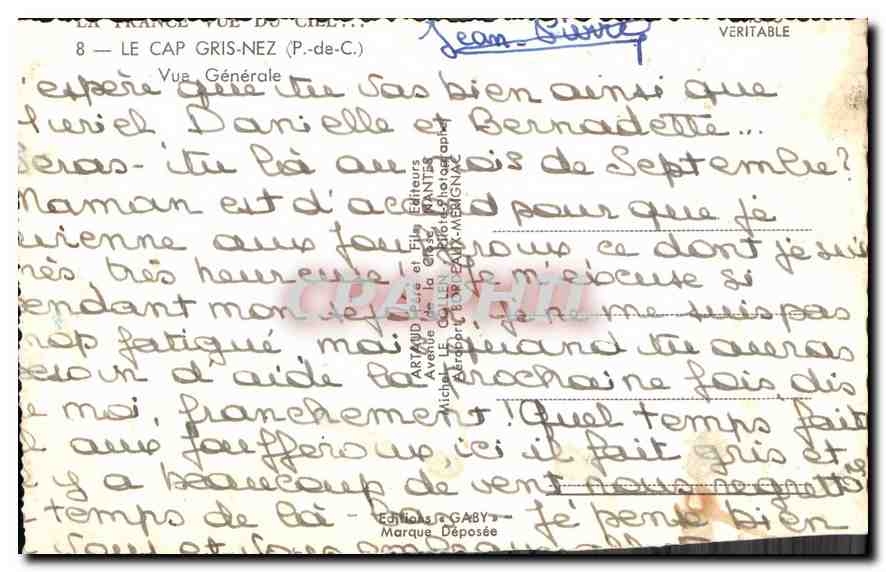 LA FRANCE VUE DU CIEL...
8 — LE CAP GRIS-NEZ (P.-de-C.)
Vue Générale
Jean-Pierre
VERITABLE
espère que tu vas bien ainsi que
Danielle et Bernadette...
Seras-tu là au mois de Septembre?
Maman est d'accord pour que je
vienne aux ce dont je suis
très très heureuse! Je m'excuse si
pendant mon séjour je ne me suis pas
trop fatigué mais quand tu auras
besoin d'aide la prochaine fois dis
le moi franchement! Quel temps fait
il aux ici il fait gris et
il y a beaucoup de vent nous
temps de là-bas. Je pense bien
à vous et vous
ARTAUD Père et Fils, Editeurs
Avenue de la Close, NANTES
Michel LE COLLEN, Pilote-Photographe
Aéroport, BORDEAUX-MERIGNAC
CPAPHIL
Editions « GABY »
Marque Déposée